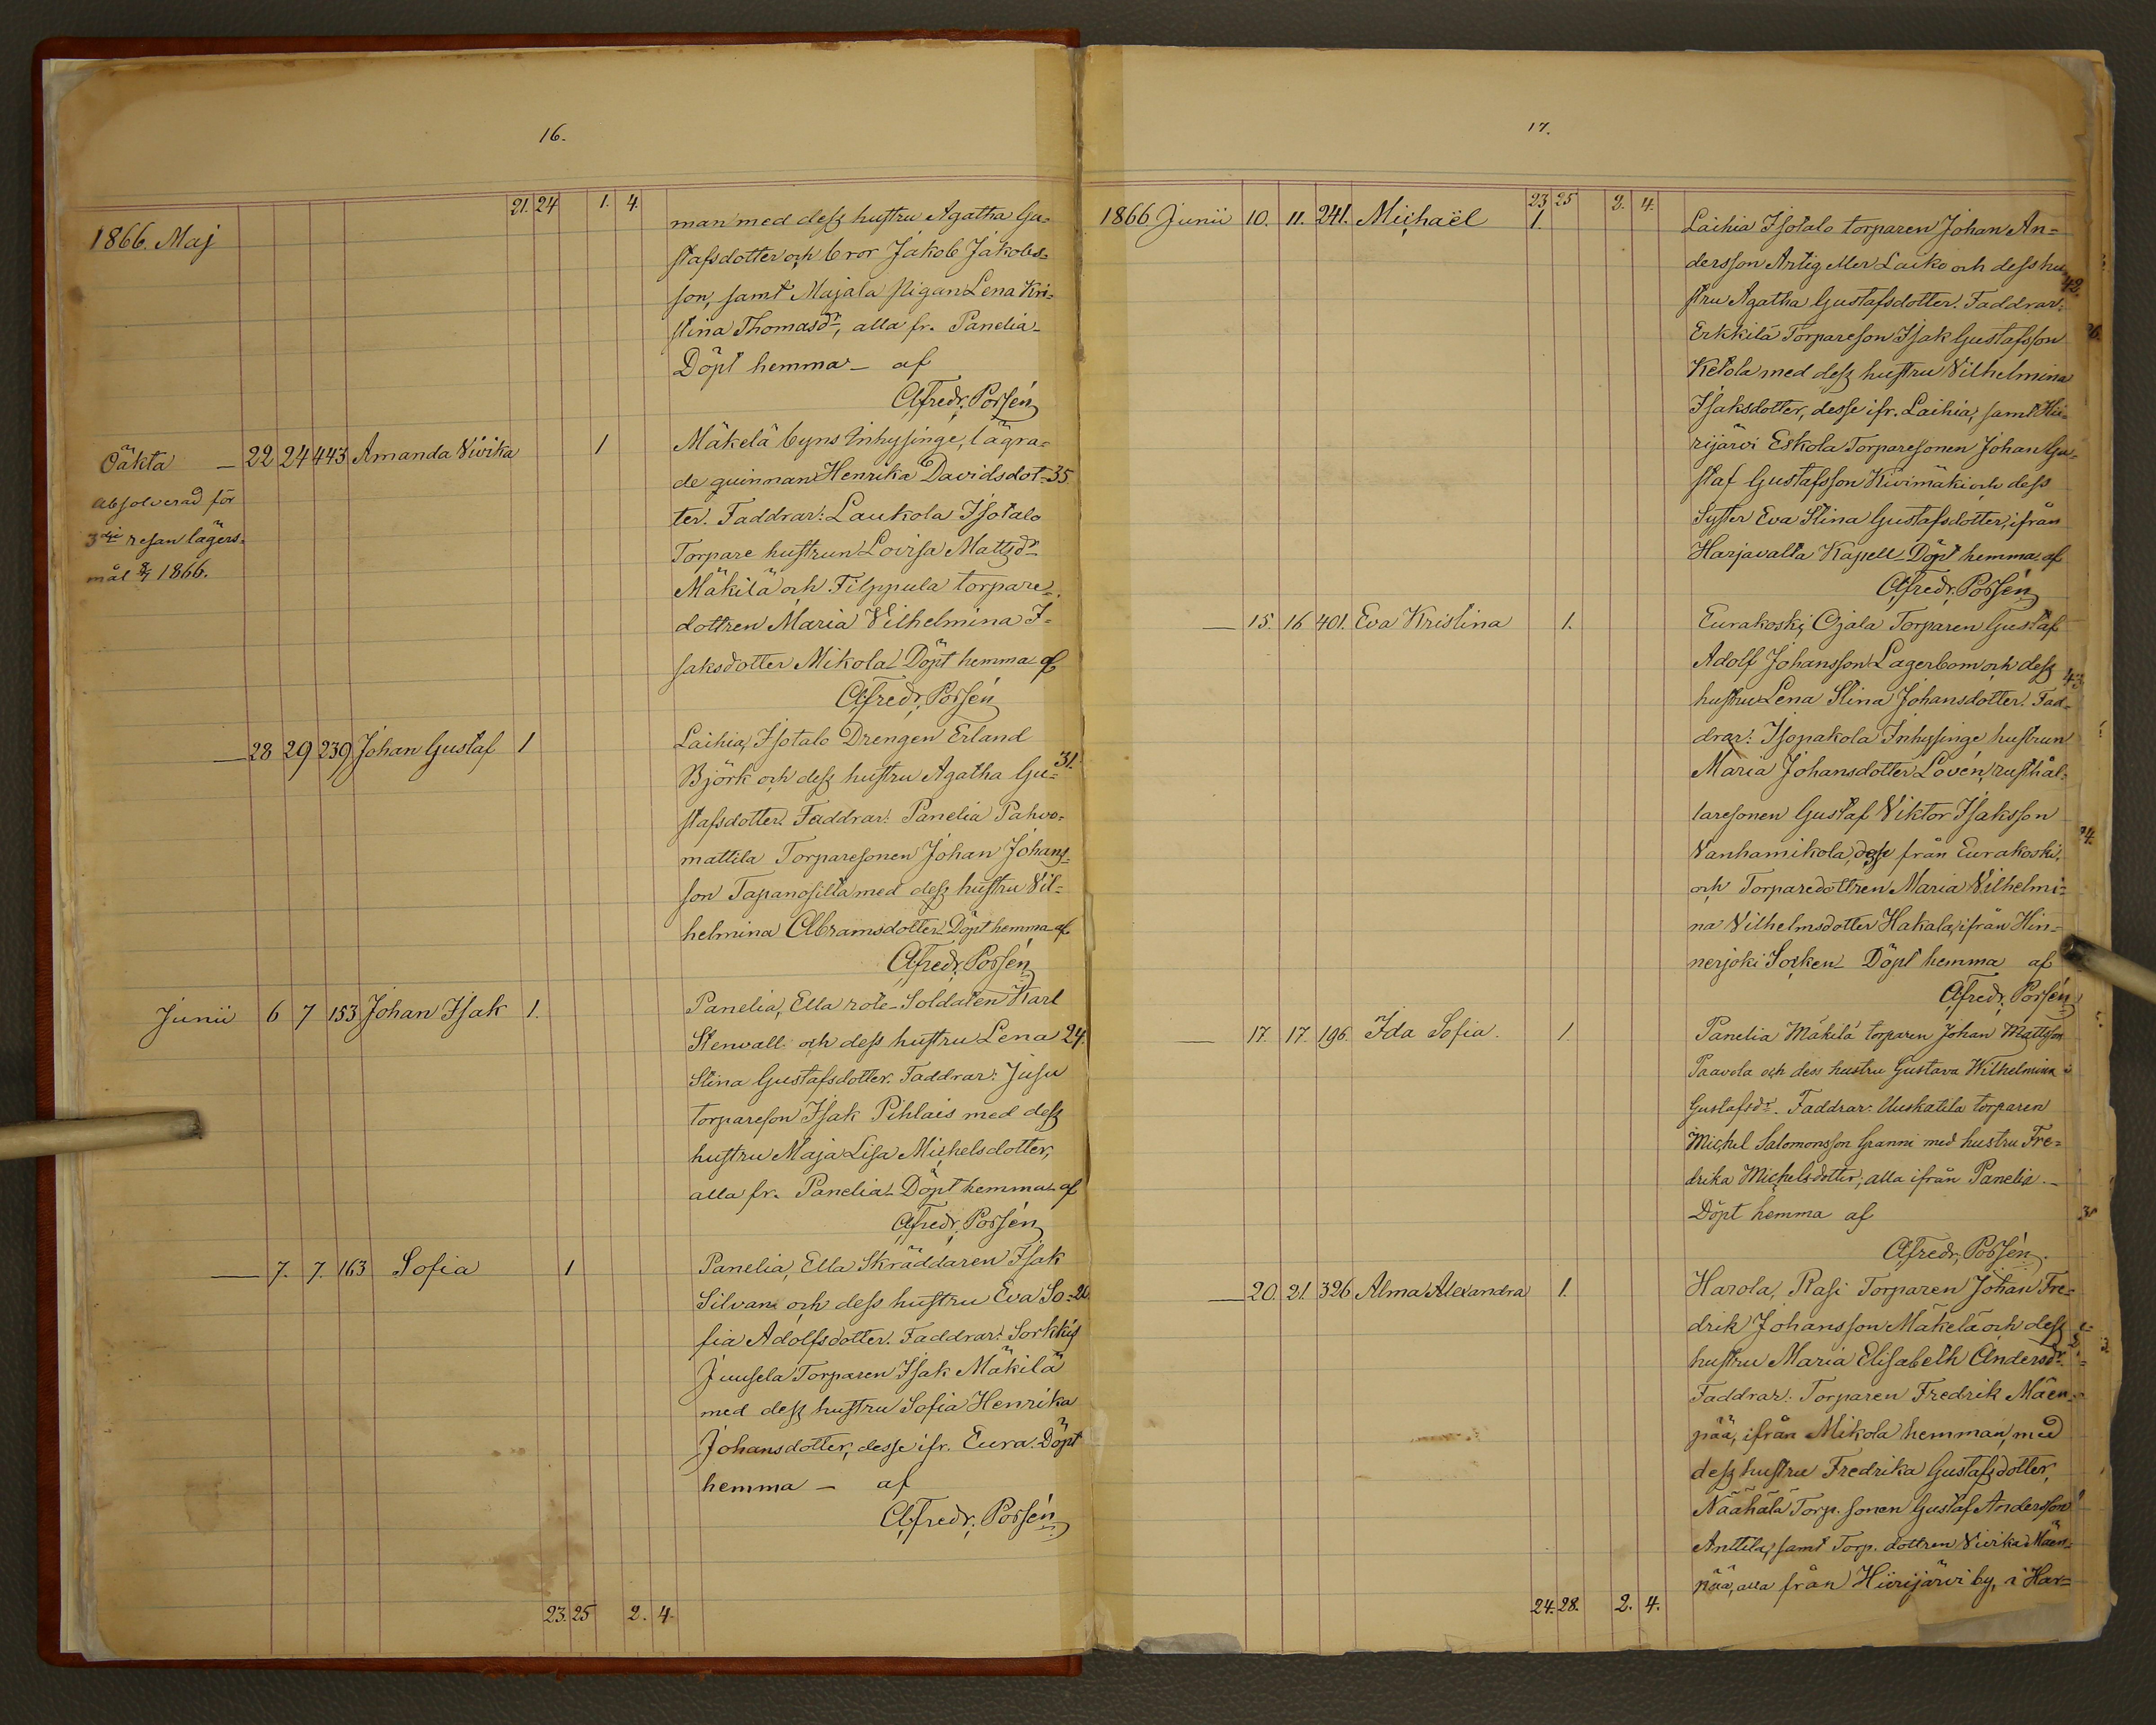 16.
21. 24 1. 4.
1866. Maj
man med dess hustru Agatha Gu-
stafsdotter och bror Jakob Jakobs-
son, samt Majala pigan Lena Kri-
stina Thomasdr, alla fr. Panelia
Döpt hemma — af
A. Fredr. Porsén
Oäkta — 22 24 443 Amanda Vivika 1
absolverad för
3dje resan lägers-
mål 8/7 1866.
Mäkelä byns Inhysinge, lägra-
de quinnan Henrika Davidsdot- 35
ter. Faddrar: Laukola Isotalo
Torpare hustrun Lovisa Mattsdr
Mäkilä och Filppula torpare-
dottren Maria Vilhelmina I-
saksdotter Mikola. Döpt hemma af
A. Fredr. Porsén
— 28 29 239 Johan Gustaf 1
Laihia, Isotalo Drengen Erland
Björk och dess hustru Agatha Gu- 31.
stafsdotter. Faddrar: Panelia Pahvo-
mattila Torparesonen Johan Johans-
son Tapanosilta med dess hustru Vil-
helmina Abramsdotter. Döpt hemma af
A. Fredr. Porsén
Junii 6 7 153 Johan Isak 1.
Panelia, Ella rote-Soldaten Karl
Stenvall och dess hustru Lena 24.
Stina Gustafsdotter. Faddrar: Jusu
torpareson Isak Pihlais med dess
hustru Maja Lisa Michelsdotter,
alla fr. Panelia. Döpt hemma af
A. Fredr. Porsén
— 7. 7. 163 Sofia 1
Panelia, Ella Skräddaren Isak
Silvan och dess hustru Eva So- 20
fia Adolfsdotter. Faddrar: Sorkkis
Juusela Torparen Isak Mäkilä
med dess hustru Sofia Henrika
Johansdotter, desse ifr. Eura. Döpt
hemma — af
A. Fredr. Porsén
23. 25 2. 4.
17.
23 25 2. 4.
1866 Junii 10. 11. 241. Michaël 1.
Laihia Isotalo torparen Johan An-
dersson Artig eller Laiko och dess hu- 42.
stru Agatha Gustafsdotter. Faddrar:
Erkkilä Torpareson Isak Gustafsson
Ketola med dess hustru Vilhelmina
Isaksdotter, desse ifr. Laihia, samt Hii-
rijärvi Eskola Torparesonen Johan Gu-
staf Gustafsson Kivimäki och dess
Syster Eva Stina Gustafsdotter, ifrån
Harjavalta Kapell. Döpt hemma af
A. Fredr. Porsén
— 15. 16 401. Eva Kristina 1.
Eurakoski, Ojala Torparen Gustaf
Adolf Johansson Lagerbom och dess 43
hustru Lena Stina Johansdotter. Fad-
drar: Isopakola Inhysinge hustrun
Maria Johansdotter Lovén, rusthål-
laresonen Gustaf Viktor Isaksson
Vanhamikola, desse från Eurakoski,
och Torparedottren Maria Vilhelmi-
na Vilhelmsdotter Hakala, ifrån Hin-
nerjoki Socken. Döpt hemma af
A. Fredr. Porsén
— 17. 17. 196. Ida Sofia. 1.
Panelia Mäkilä torparen Johan Mattsson
Paavola och dess hustru Gustava Wilhelmina
Gustafsdr. Faddrar: Uuskatila torparen
Michel Salomonsson Granni med hustru Fre-
drika Michelsdotter, alla ifrån Panelia. —
Döpt hemma af
A. Fredr. Porsén.
— 20. 21. 326 Alma Alexandra 1.
Harola, Rasi Torparen Johan Fre-
drik Johansson Mäkelä och dess
hustru Maria Elisabeth Andersdr.
Faddrar: Torparen Fredrik Mäen-
pää, ifrån Mikola hemman, med
dess hustru Fredrika Gustafsdotter,
Näähälä Torp. sonen Gustaf Andersson
Anttila, samt Torp. dottren Vivika Mäen-
pää, alla från Hiirijärvi by, i Har-
24. 28. 2. 4.